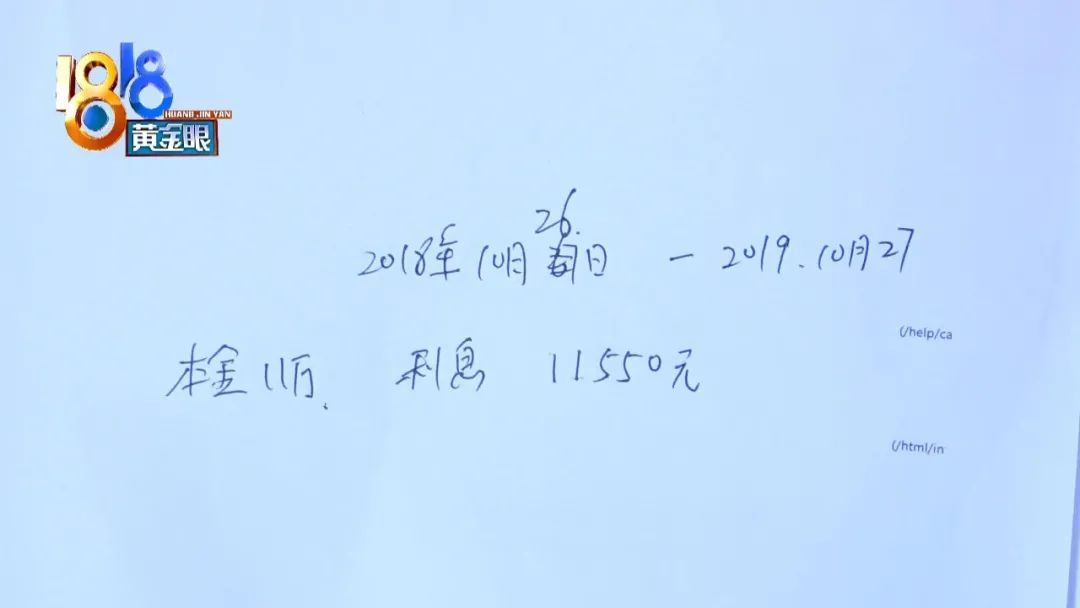 1818
HUANG JIN YAN
黄金眼
26.
2018年10月日 — 2019.10月27
(/help/ca
本金11万. 利息 11550元
(/html/in